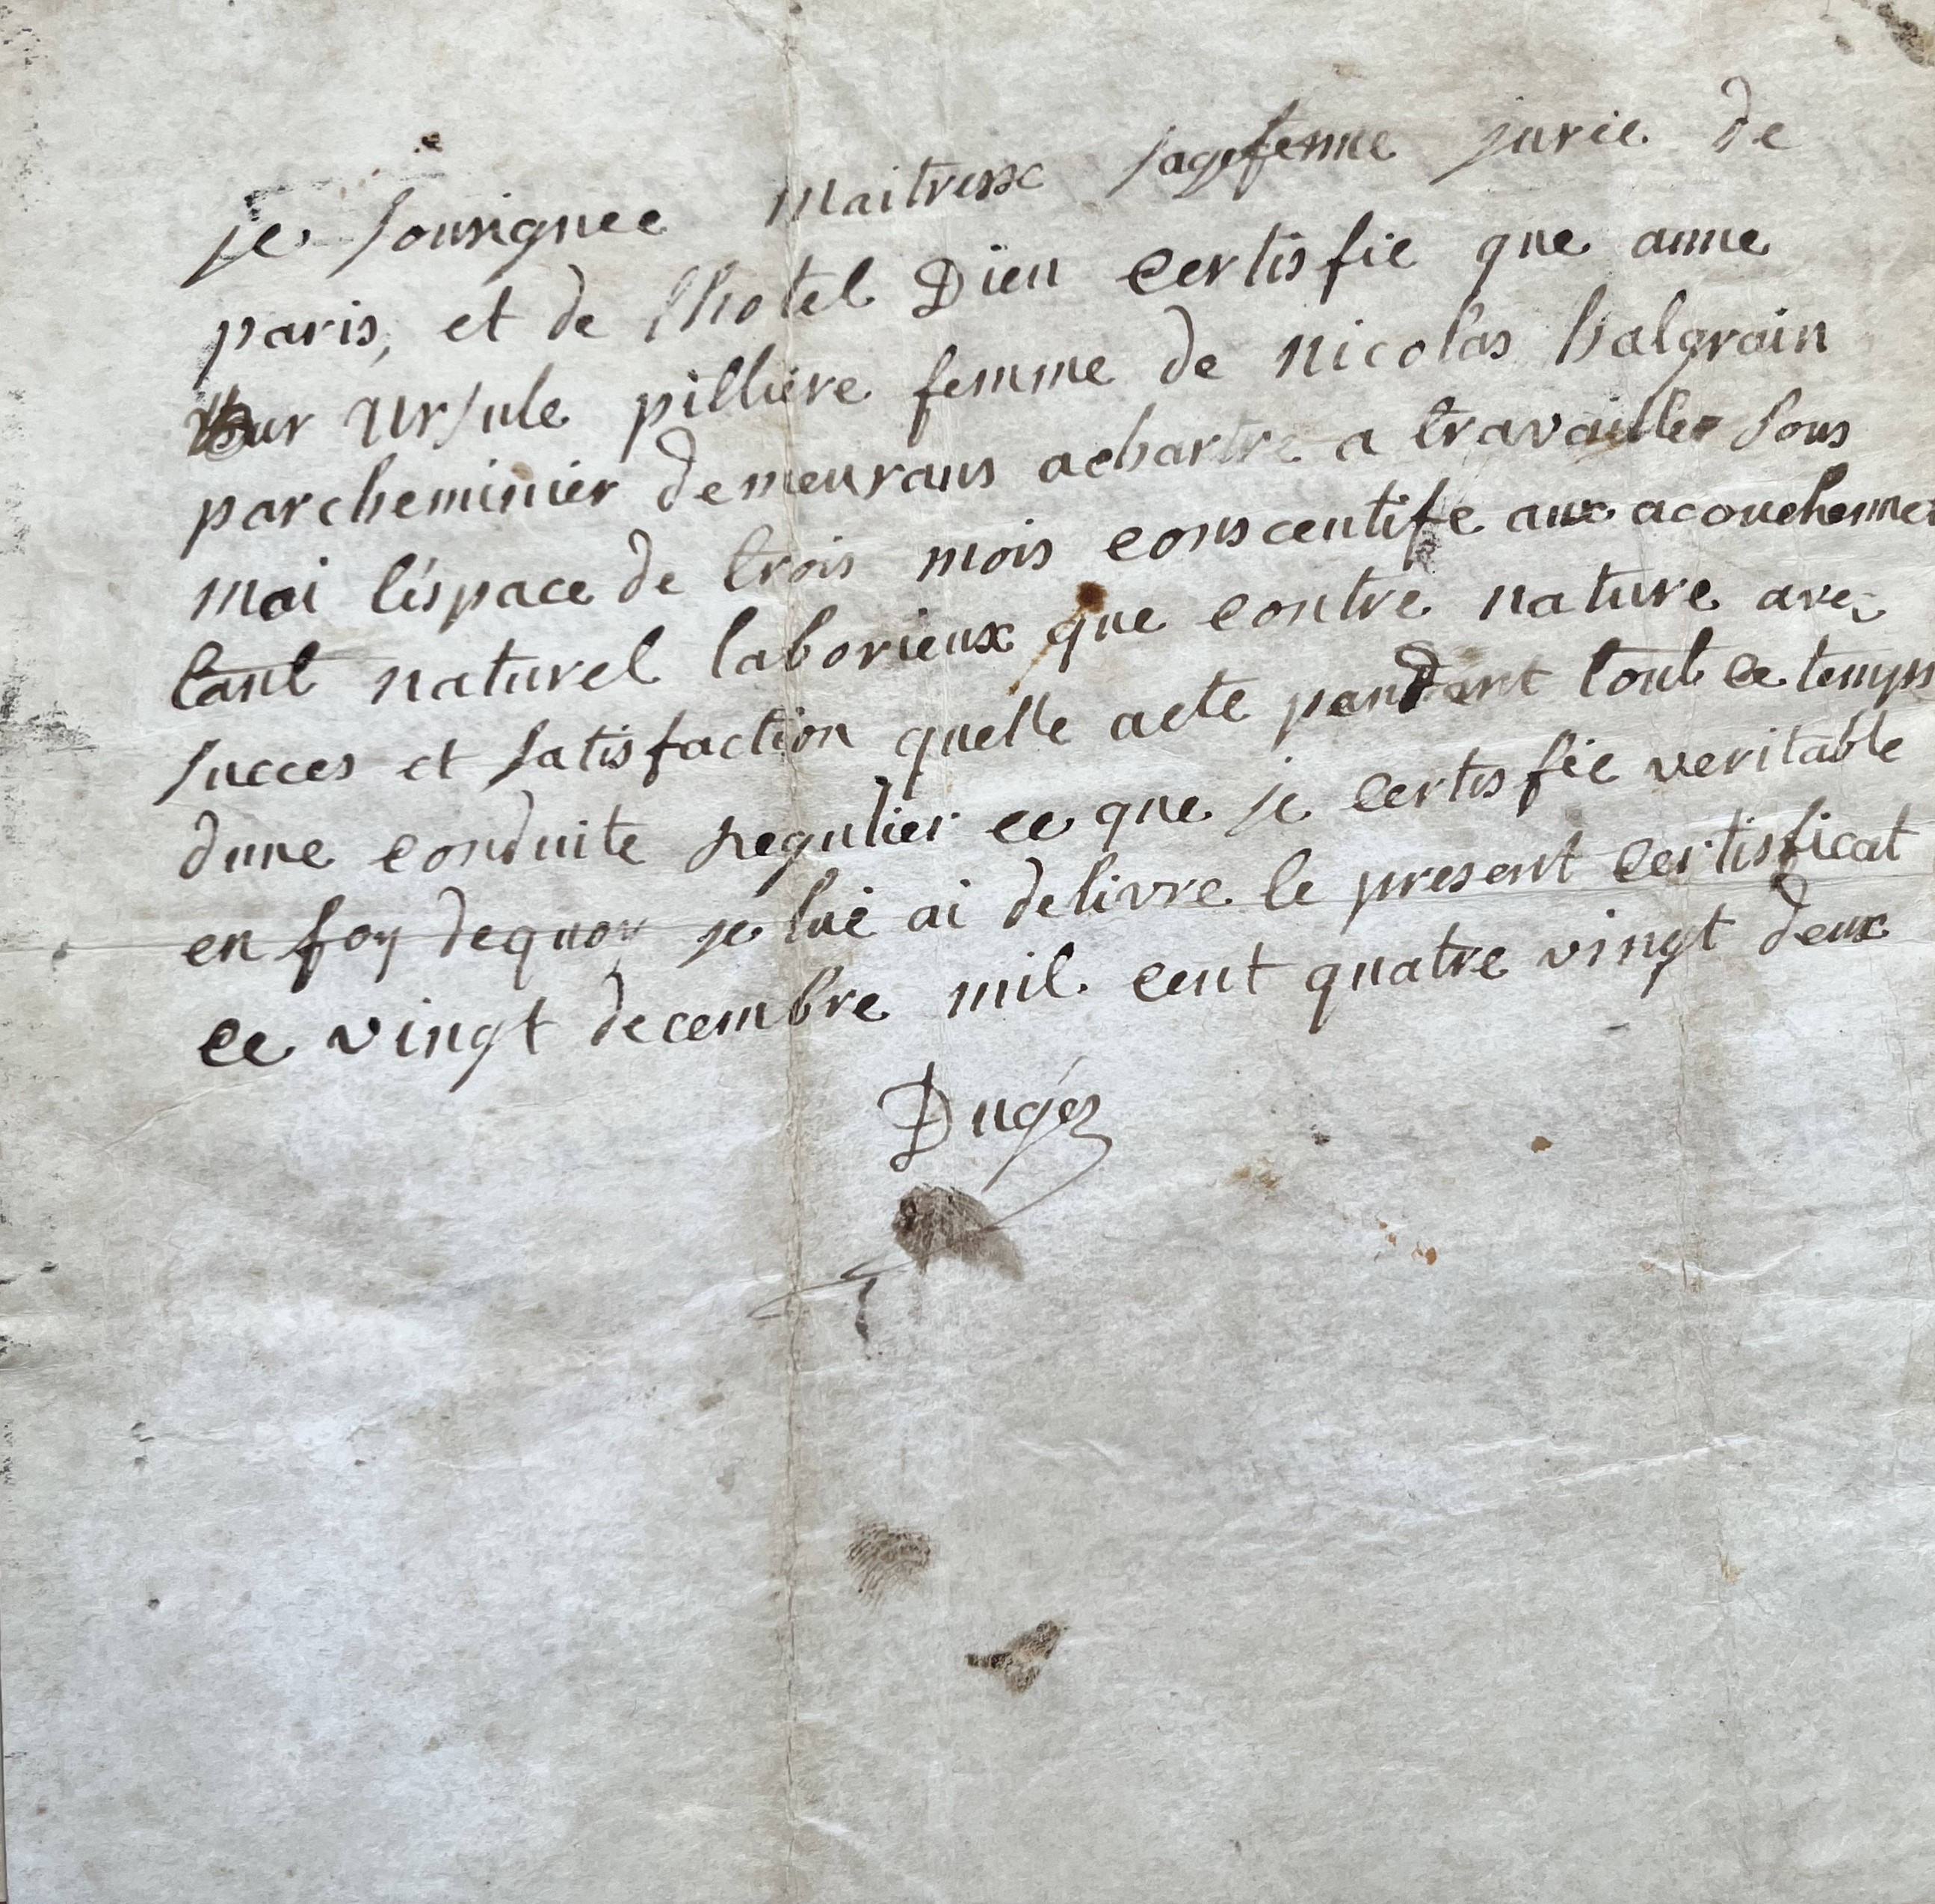 je sousignee maitresse sagefemme jurée de
paris, et de lhotel Dieu certisfie que anne
ur ursule pilliere femme de nicolas halgrain
parcheminier demeurans achartre a travailler sous
moi léspace de trois mois conscentife aux acouchemen
tant naturel laborieux que contre nature avec
succes et satisfaction quelle acte pendant tout ce temps
dune conduite regulier ce que je certisfie veritable
en foy dequoy je lui ai delivre le present certisficat
ce vingt decembre mil cent quatre vingt deux
Dugés